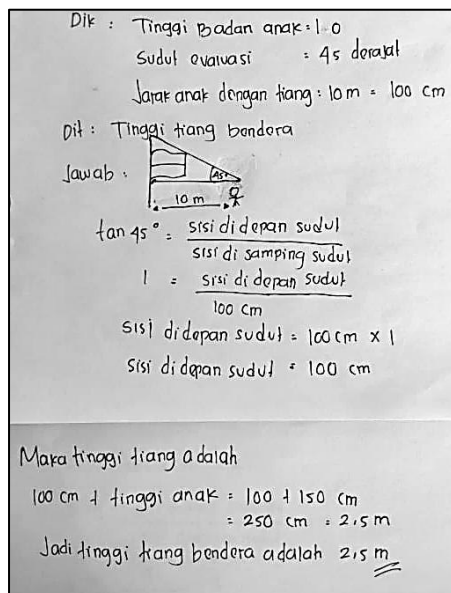 Dik : Tinggi Badan anak : 1 0
Sudut evaluasi = 45 derajat
Jarak anak dengan tiang : 10 m = 100 cm
Dit : Tinggi tiang bendera
Jawab :
45°
10 m
tan 45° = sisi di depan sudut
sisi di samping sudut
1 = sisi di depan sudut
100 cm
sisi di depan sudut = 100 cm x 1
sisi di depan sudut = 100 cm
Maka tinggi tiang adalah
100 cm + tinggi anak = 100 + 150 cm
= 250 cm = 2,5 m
Jadi tinggi tiang bendera adalah 2,5 m